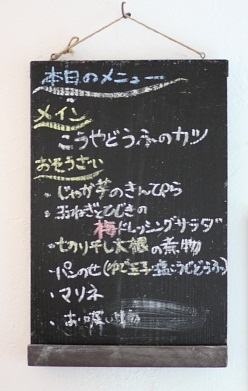 本日のメニュー
メイン
こうやどうふのカツ
おそうざい
・じゃが芋のきんぴら
・玉ねぎとひじきの
梅ドレッシングサラダ
・切り干し大根の煮物
・パンのせ(ゆで玉子・塩こうじどうふ)
・マリネ